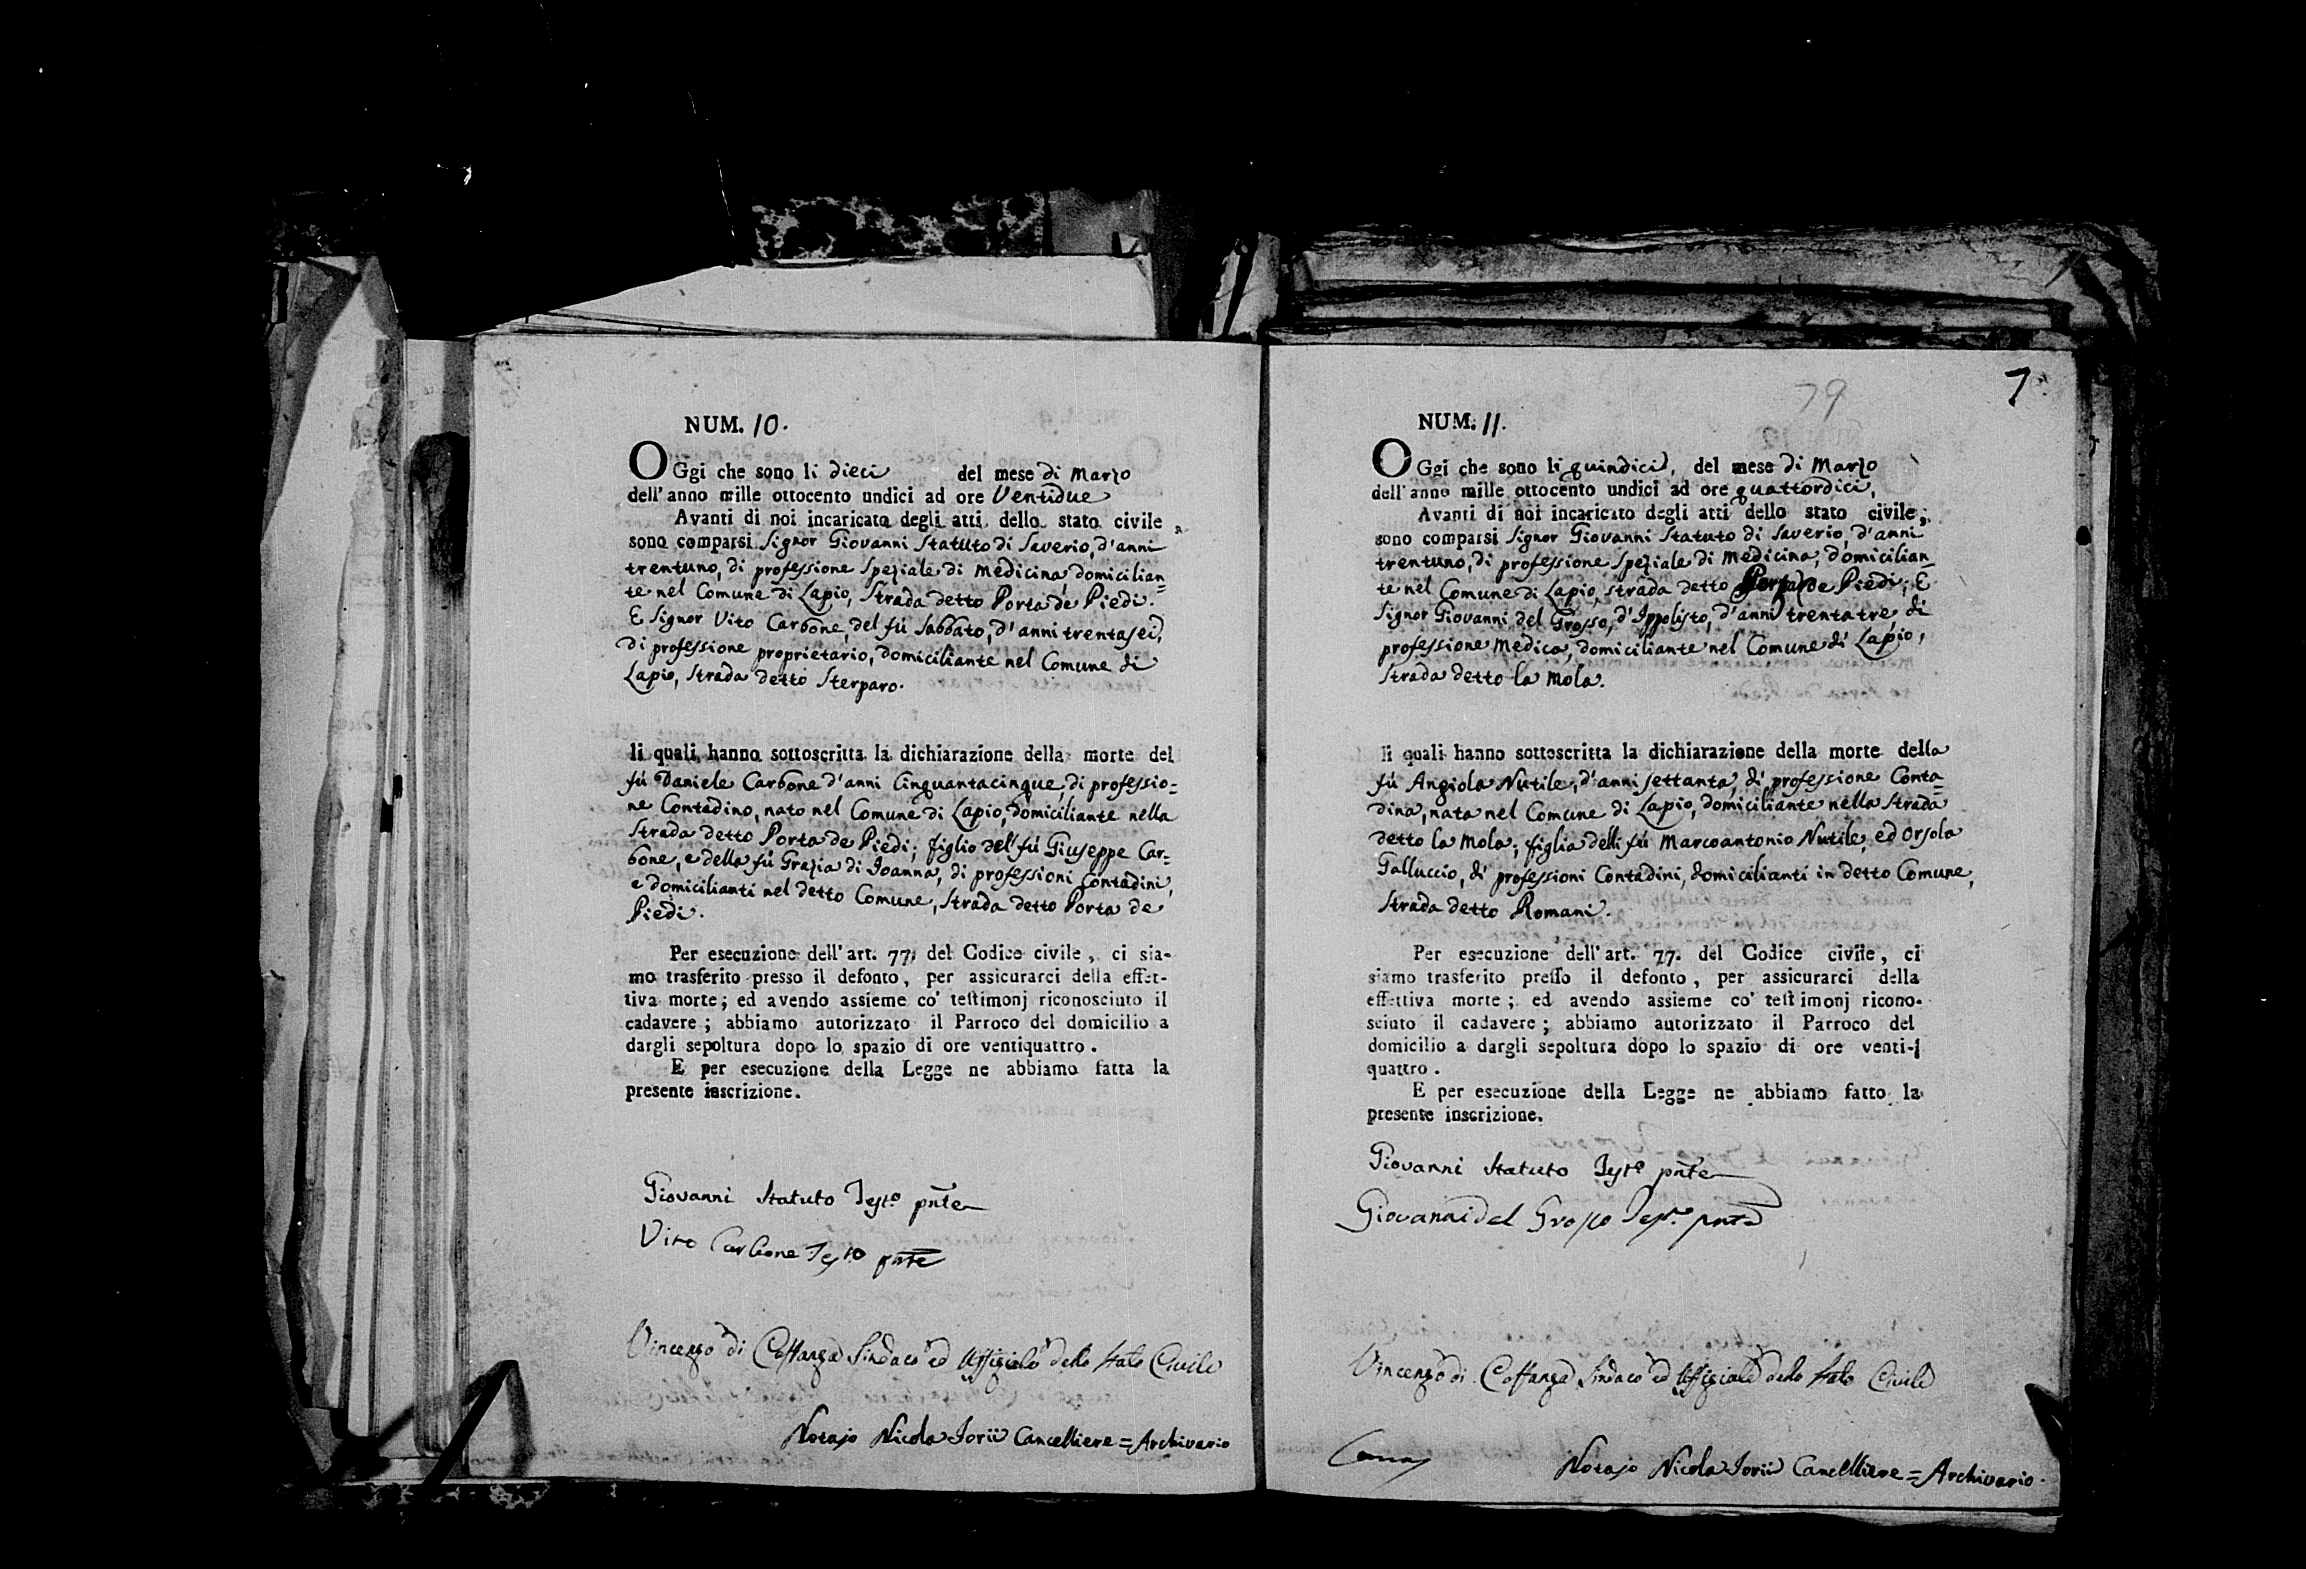 NUM. 10.
OGgi che sono li dieci del mese di Marzo
dell'anno mille ottocento undici ad ore Ventidue
Avanti di noi incaricato degli atti dello stato civile
sono comparsi Signor Giovanni Statuto di Saverio, d'anni
trentuno, di professione Speziale di Medicina, domicilian=
te nel Comune di Lapio, Strada detto Porta de Piedi.
E Signor Vito Carbone, del fù Sabbato, d'anni trentasei,
di professione proprietario, domiciliante nel Comune di
Lapio, Strada detto Sterparo.
li quali hanno sottoscritta la dichiarazione della morte del
fù Daniele Carbone d'anni Cinquantacinque, di professio=
ne Contadino, nato nel Comune di Lapio, domiciliante nella
Strada detto Porta de Piedi; figlio del fù Giuseppe Car=
bone, e della fù Grazia di Joanna, di professioni Contadini,
e domicilianti nel detto Comune, Strada detto Porta de
Piedi.
Per esecuzione dell'art. 77. del Codice civile, ci sia-
mo trasferito presso il defonto, per assicurarci della effet-
tiva morte; ed avendo assieme co' testimonj riconosciuto il
cadavere; abbiamo autorizzato il Parroco del domicilio a
dargli sepoltura dopo lo spazio di ore ventiquattro.
E per esecuzione della Legge ne abbiamo fatta la
presente inscrizione.
Giovanni Statuto Testo pnte
Vito Carbone Testo pnte
Vincenzo di Costanza Sindaco ed Uffiziale dello Stato Civile
Notajo Nicola Jorii Cancelliere = Archivario
79
7
NUM. 11.
OGgi che sono li quindici, del mese di Marzo
dell'anno mille ottocento undici ad ore quattordici,
Avanti di noi incaricato degli atti dello stato civile;
sono comparsi Signor Giovanni Statuto di Saverio, d'anni
trentuno, di professione Speziale di Medicina, domicilian=
te nel Comune di Lapio, strada detto Porta de Piedi; E
Signor Giovanni del Grosso, d'Ippolisto, d'anni trentatre, di
professione Medico, domiciliante nel Comune di Lapio,
Strada detto la Mola.
li quali hanno sottoscritta la dichiarazione della morte della
fù Angiola Nutile, d'anni settanta, di professione Conta=
dina, nata nel Comune di Lapio, domiciliante nella Strada
detto la Mola; figlia delli fú Marcoantonio Nutile, ed Orsola
Galluccio, di professioni Contadini, domicilianti in detto Comune,
Strada detto Romani.
Per esecuzione dell'art. 77. del Codice civile, ci
siamo trasferito presso il defonto, per assicurarci della
effettiva morte; ed avendo assieme co' testimonj ricono-
sciuto il cadavere; abbiamo autorizzato il Parroco del
domicilio a dargli sepoltura dopo lo spazio di ore venti-
quattro.
E per esecuzione della Legge ne abbiamo fatto la
presente inscrizione.
Giovanni Statuto Testo pnte
Giovanni del Grosso Testo pnte
Vincenzo di Costanza Sindaco ed Uffiziale dello Stato Civile
Notajo Nicola Jorii Cancelliere = Archivario.